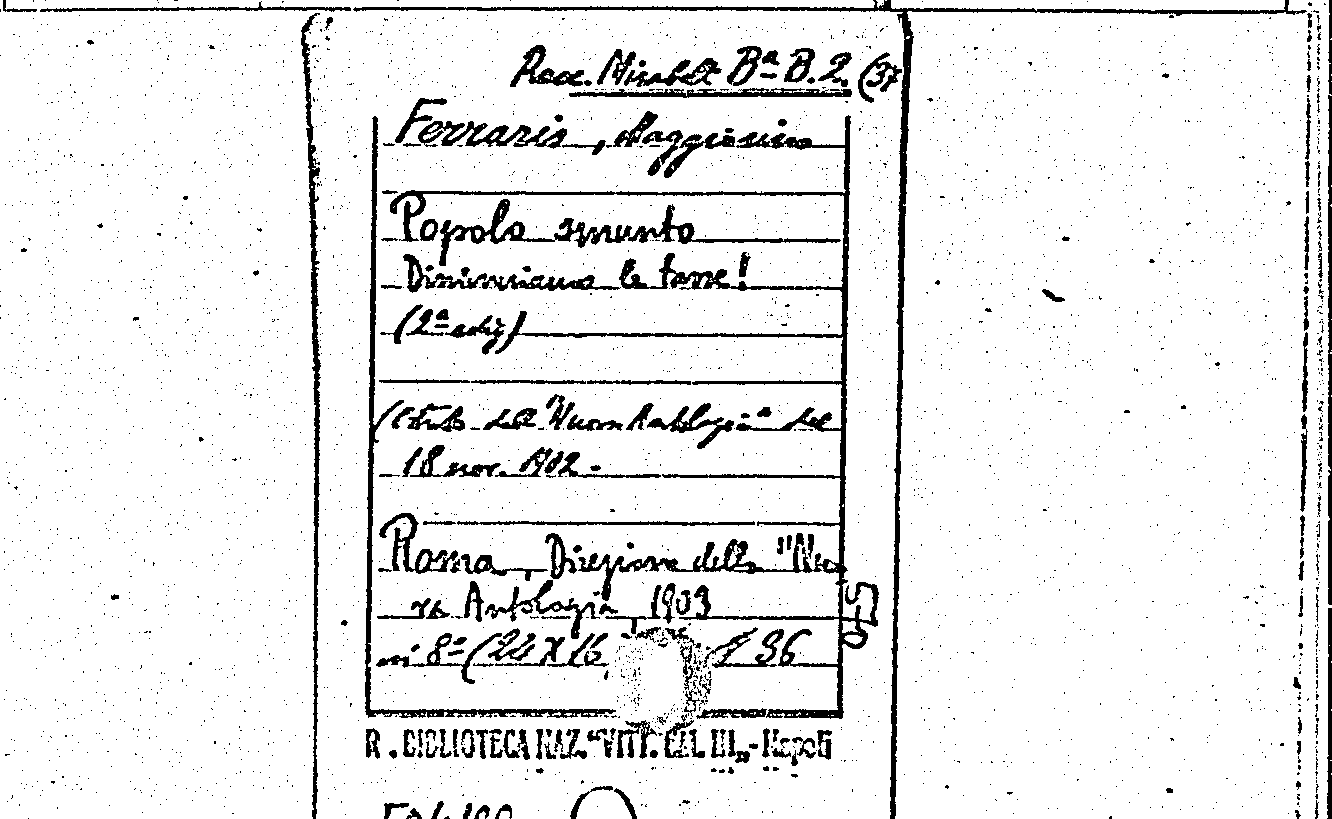 Racc. Mirabelli Bª B.2. (37
Ferraris, Maggiorino
Popolo smunto
Diminuiamo le tasse!
(2ª ediz)
(Estr. dalla "Nuova Antologia" del
18 nov. 1902 -
Roma, Direzione della "Nuo
va Antologia, 1903
in 8º (24 X 16 36
R. BIBLIOTECA NAZ. "VITT. EM. III„ - Napoli